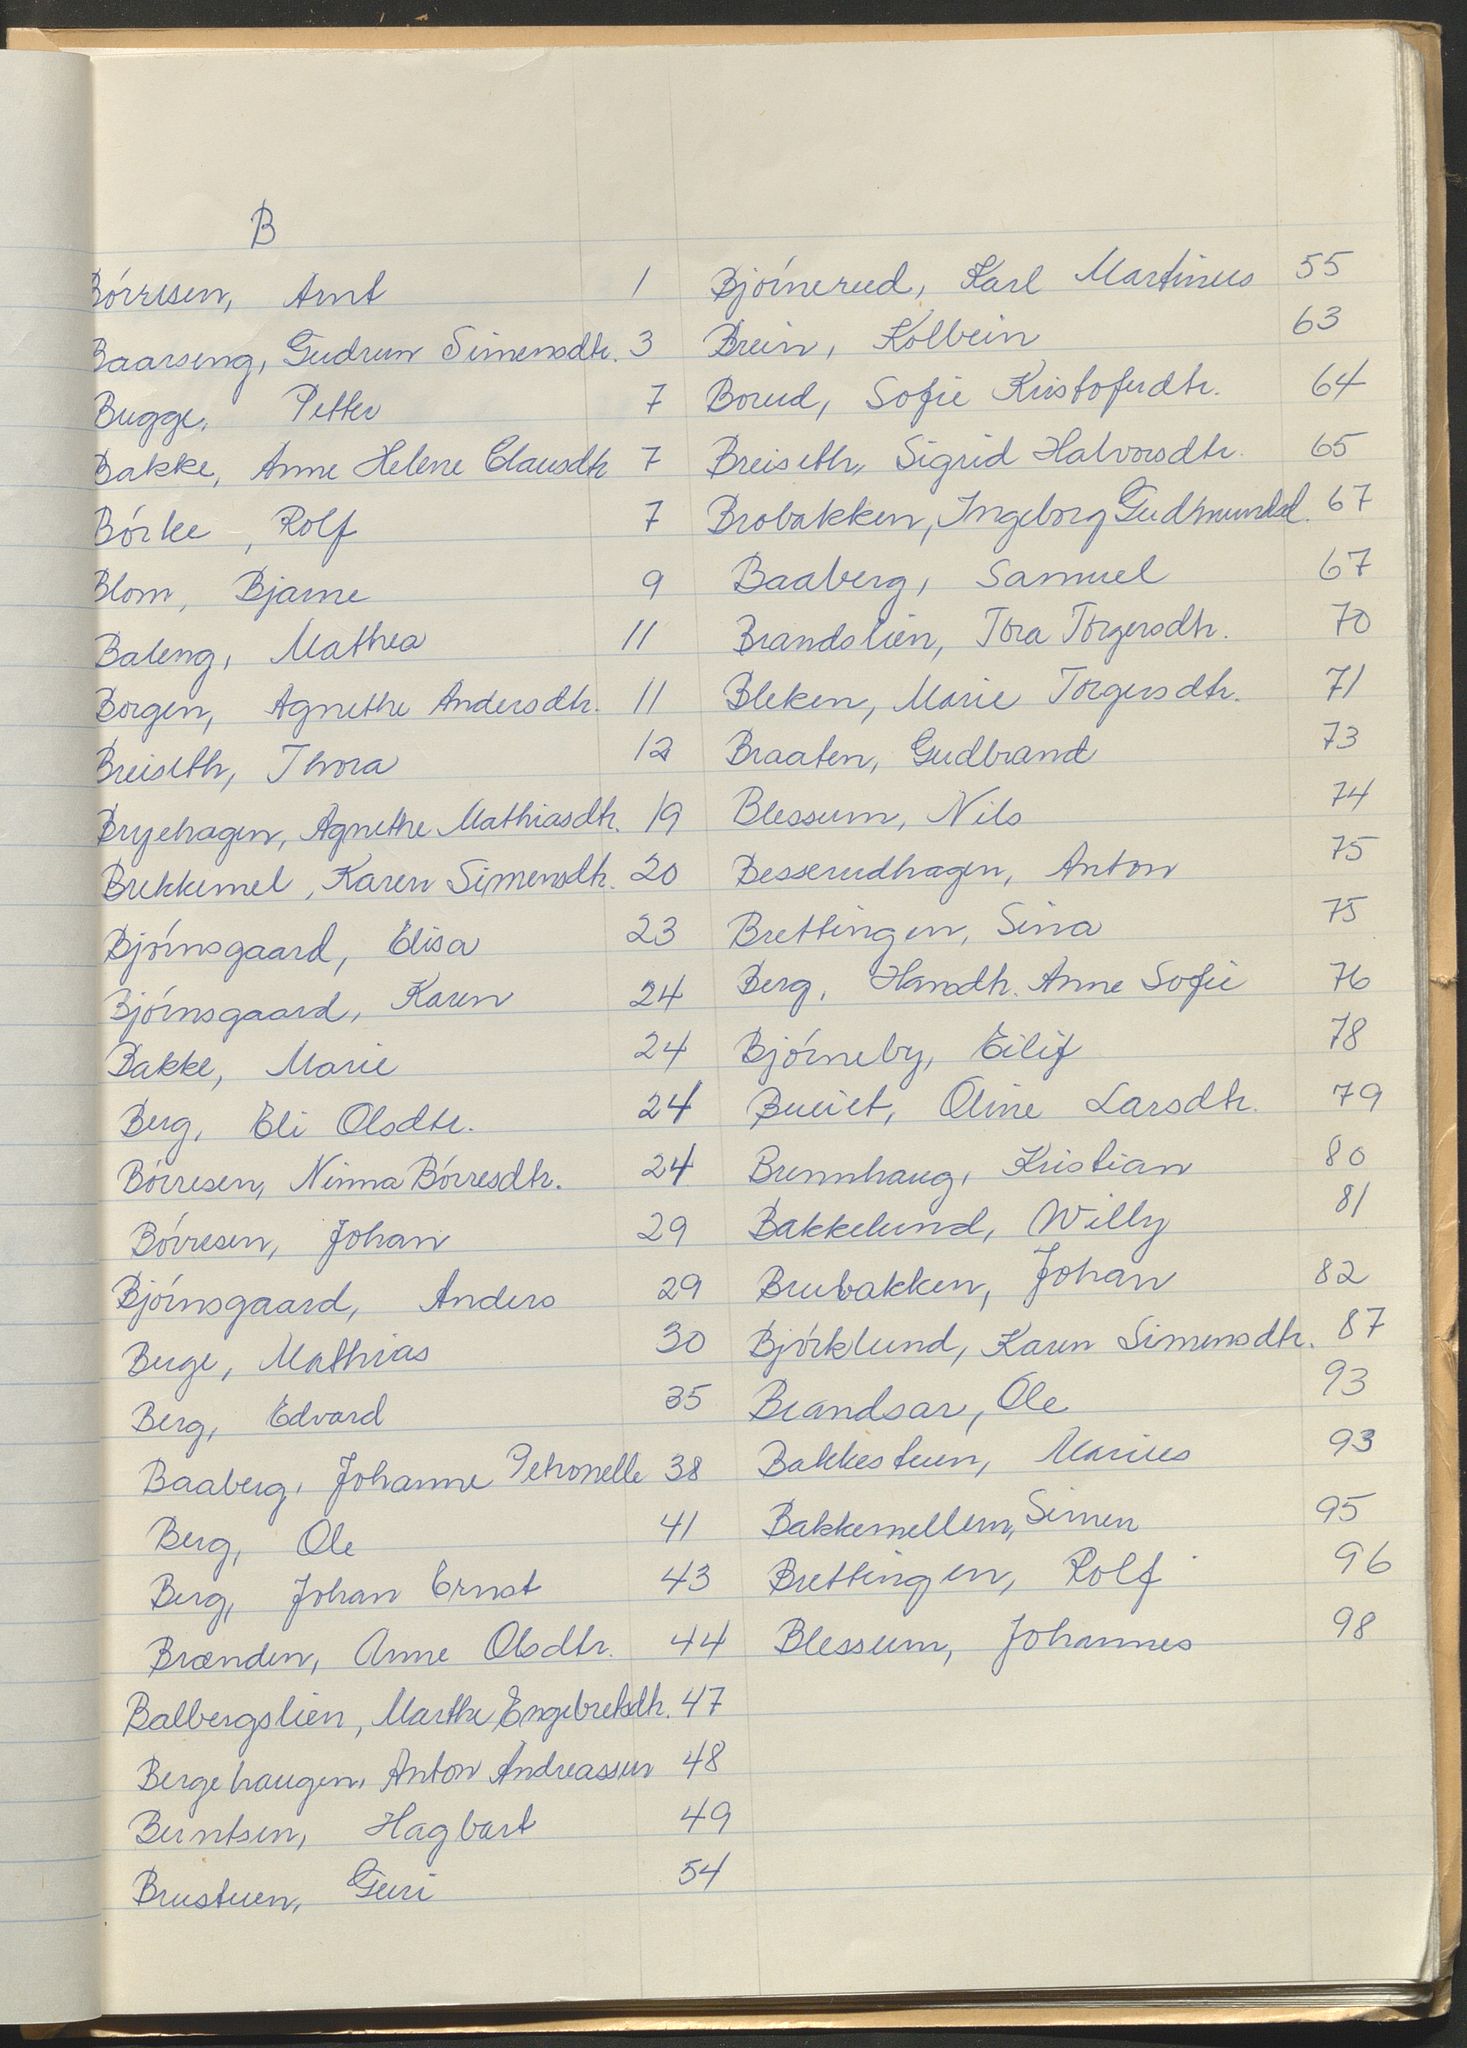 B
Børresen, Arnt 1
Baarseng, Gudrun Simensdtr. 3
Bugge, Petter 7
Bakke, Anne Helene Clausdtr 7
Børke, Rolf 7
Blom, Bjarne 9
Baleng, Mathea 11
Borgen, Agnethe Andersdtr. 11
Breiseth, Thora 12
Bryehagen, Agnethe Mathiasdtr. 19
Brekkemel, Karen Simensdtr. 20
Bjørnsgaard, Elisa 23
Bjørnsgaard, Karen 24
Bakke, Marie 24
Berg, Eli Olsdtr. 24
Børresen, Ninna Børresdtr. 24
Børresen, Johan 29
Bjørnsgaard, Anders 29
Berge, Mathias 30
Berg, Edvard 35
Baaberg, Johanne Petronelle 38
Berg, Ole 41
Berg, Johan Ernst 43
Brænden, Anne Olsdtr. 44
Balbergslien, Marthe Engebretsdtr. 47
Bergehaugen, Anton Andreassen 48
Berntsen, Hagbart 49
Brustuen, Guri 54
Bjørnerud, Karl Martinus 55
Brein, Kolbein 63
Borud, Sofie Kristoferdtr. 64
Breiseth, Sigrid Halvorsdtr. 65
Brobakken, Ingeborg Gudmundsd. 67
Baaberg, Samuel 67
Brandslien, Tora Torgersdtr. 70
Bleken, Marie Torgersdtr. 71
Braaten, Gudbrand 73
Blessum, Nils 74
Besserudhagen, Anton 75
Brettingen, Sina 75
Berg, Hansdtr. Anne Sofie 76
Bjørneby, Eilif 78
Oline Larsdtr. 79
Brunnhaug, Kristian 80
Bakkelund, Willy 81
Brubakken, Johan 82
Bjørklund, Karen Simensdtr. 87
Brandsar, Ole 93
Bakkestuen, Marius 93
Bakkemellem, Simen 95
Brettingen, Rolf 96
Blessum, Johannes 98